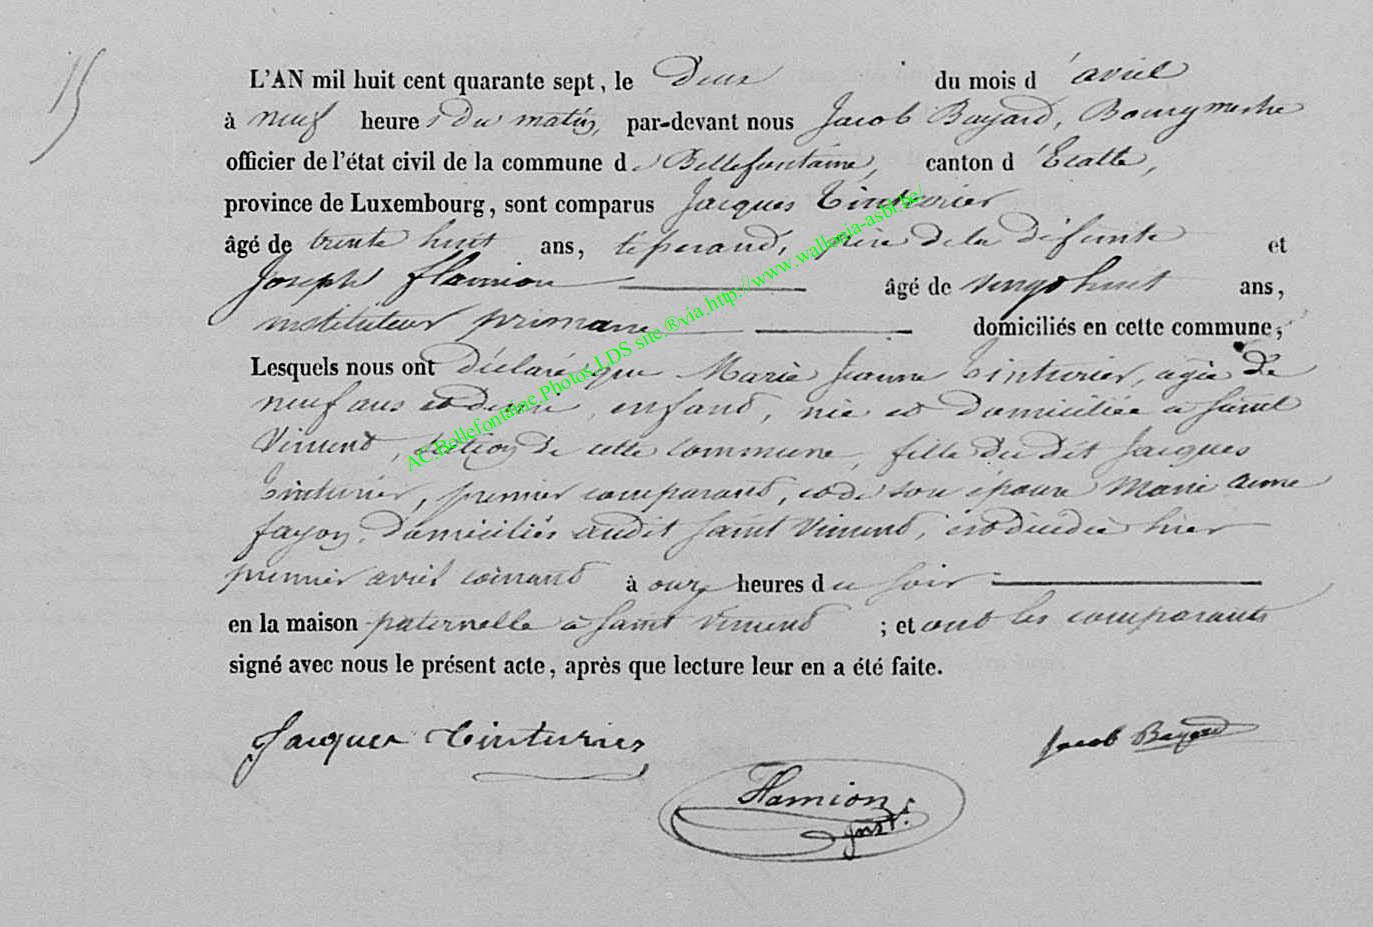 15
L'AN mil huit cent quarante sept, le Deux du mois d'avril
à neuf heures du matin, par-devant nous Jacob Bayard, Bourgmestre
officier de l'état civil de la commune de Bellefontaine, canton d'Etalle,
province de Luxembourg, sont comparus Jacques Tinturier
âgé de trente huit ans, père de la défunte et
Joseph flamion âgé de vingt huit ans,
instituteur primaire domiciliés en cette commune;
Lesquels nous ont déclaré que Marie Jeanne Tinturier, agée de
neuf ans et demie, enfant, née et domiciliée à Saint
Vincent, section de cette commune, fille du dit Jacques
Tinturier, premier comparant, et de son épouse Marie Anne
fayon, domiciliés audit Saint Vincent, est décédée hier
premier avril courant à onze heures du soir
en la maison paternelle à Saint Vincent ; et ont les comparants
signé avec nous le présent acte, après que lecture leur en a été faite.
Jacques Tinturier
Jacob Bayard
Flamion
Inst.r
AC.Bellefontaine.Photos.LDS site.®via.http://www.wallonia-asbl.be/